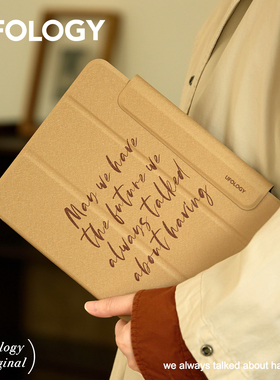 UFOLOGY
UFOLOGY
May we have
the future we
always talked
about having
ology
ginal
we always talked about ha